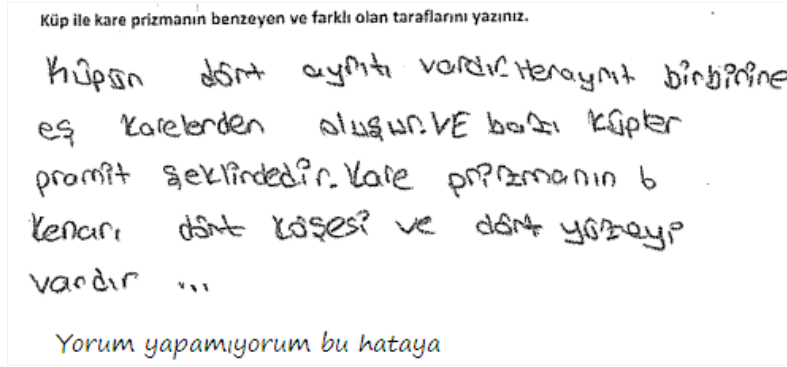 Küp ile kare prizmanın benzeyen ve farklı olan taraflarını yazınız.
Küpün dört ayrıtı vardır. Herayrıt birbirine
eş karelerden oluşur. VE bazı küpler
pramit şeklindedir. Kare prizmanın 6
kenarı dört köşesi ve dört yüzeyi
vardır ...
Yorum yapamıyorum bu hataya